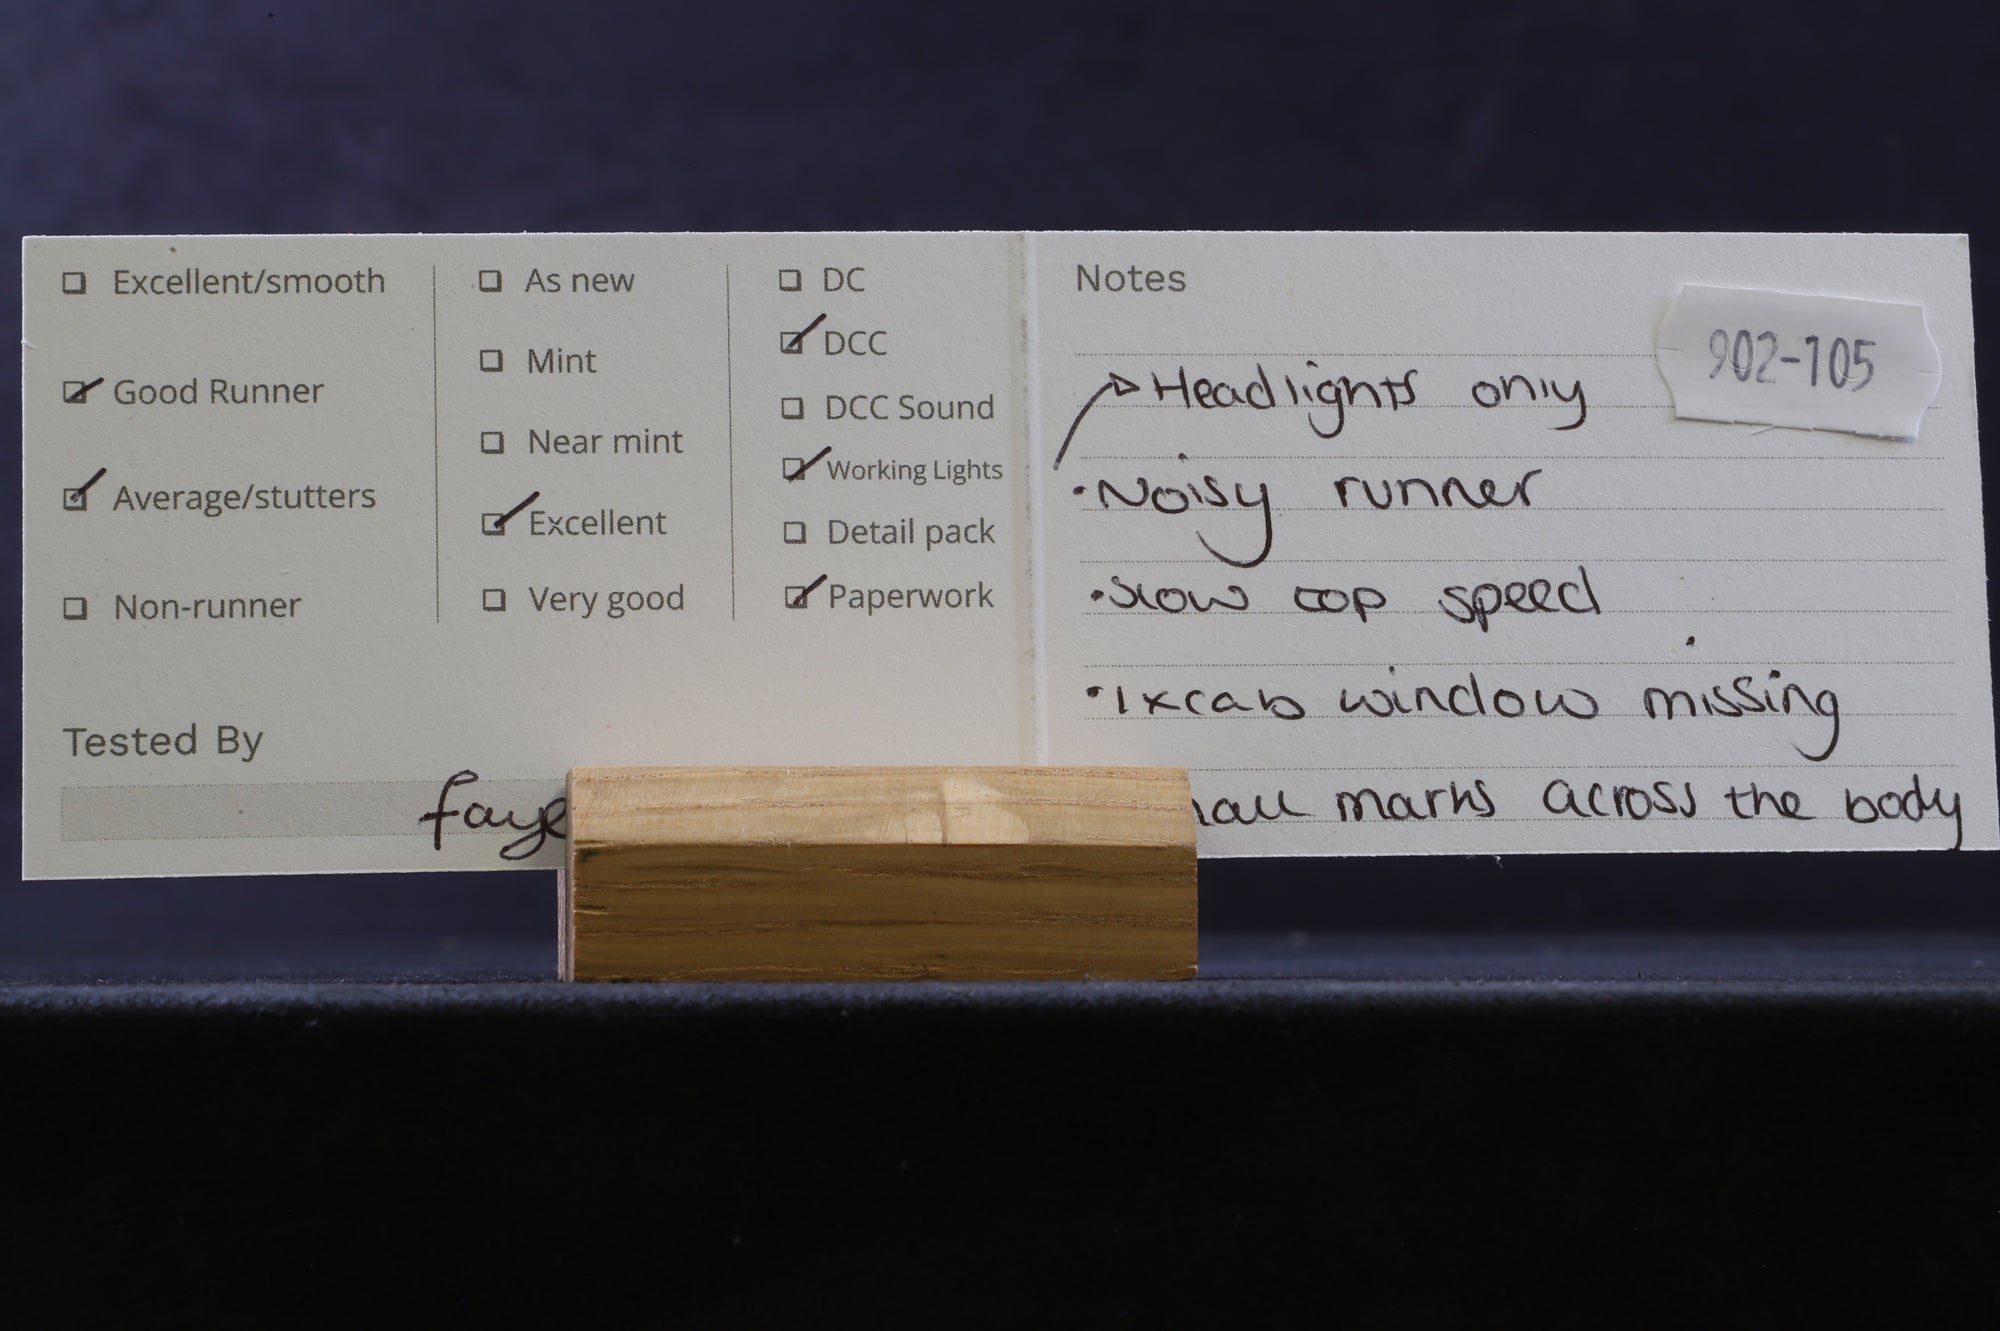 Excellent/smooth
Good Runner
Average/stutters
Non-runner
As new
Mint
Near mint
Excellent
Very good
DC
DCC
DCC Sound
Working Lights
Detail pack
Paperwork
Tested By
faye
Notes
902-105
Headlights only
• Noisy runner
• Slow top speed
• 1x cab window missing
marks across the body